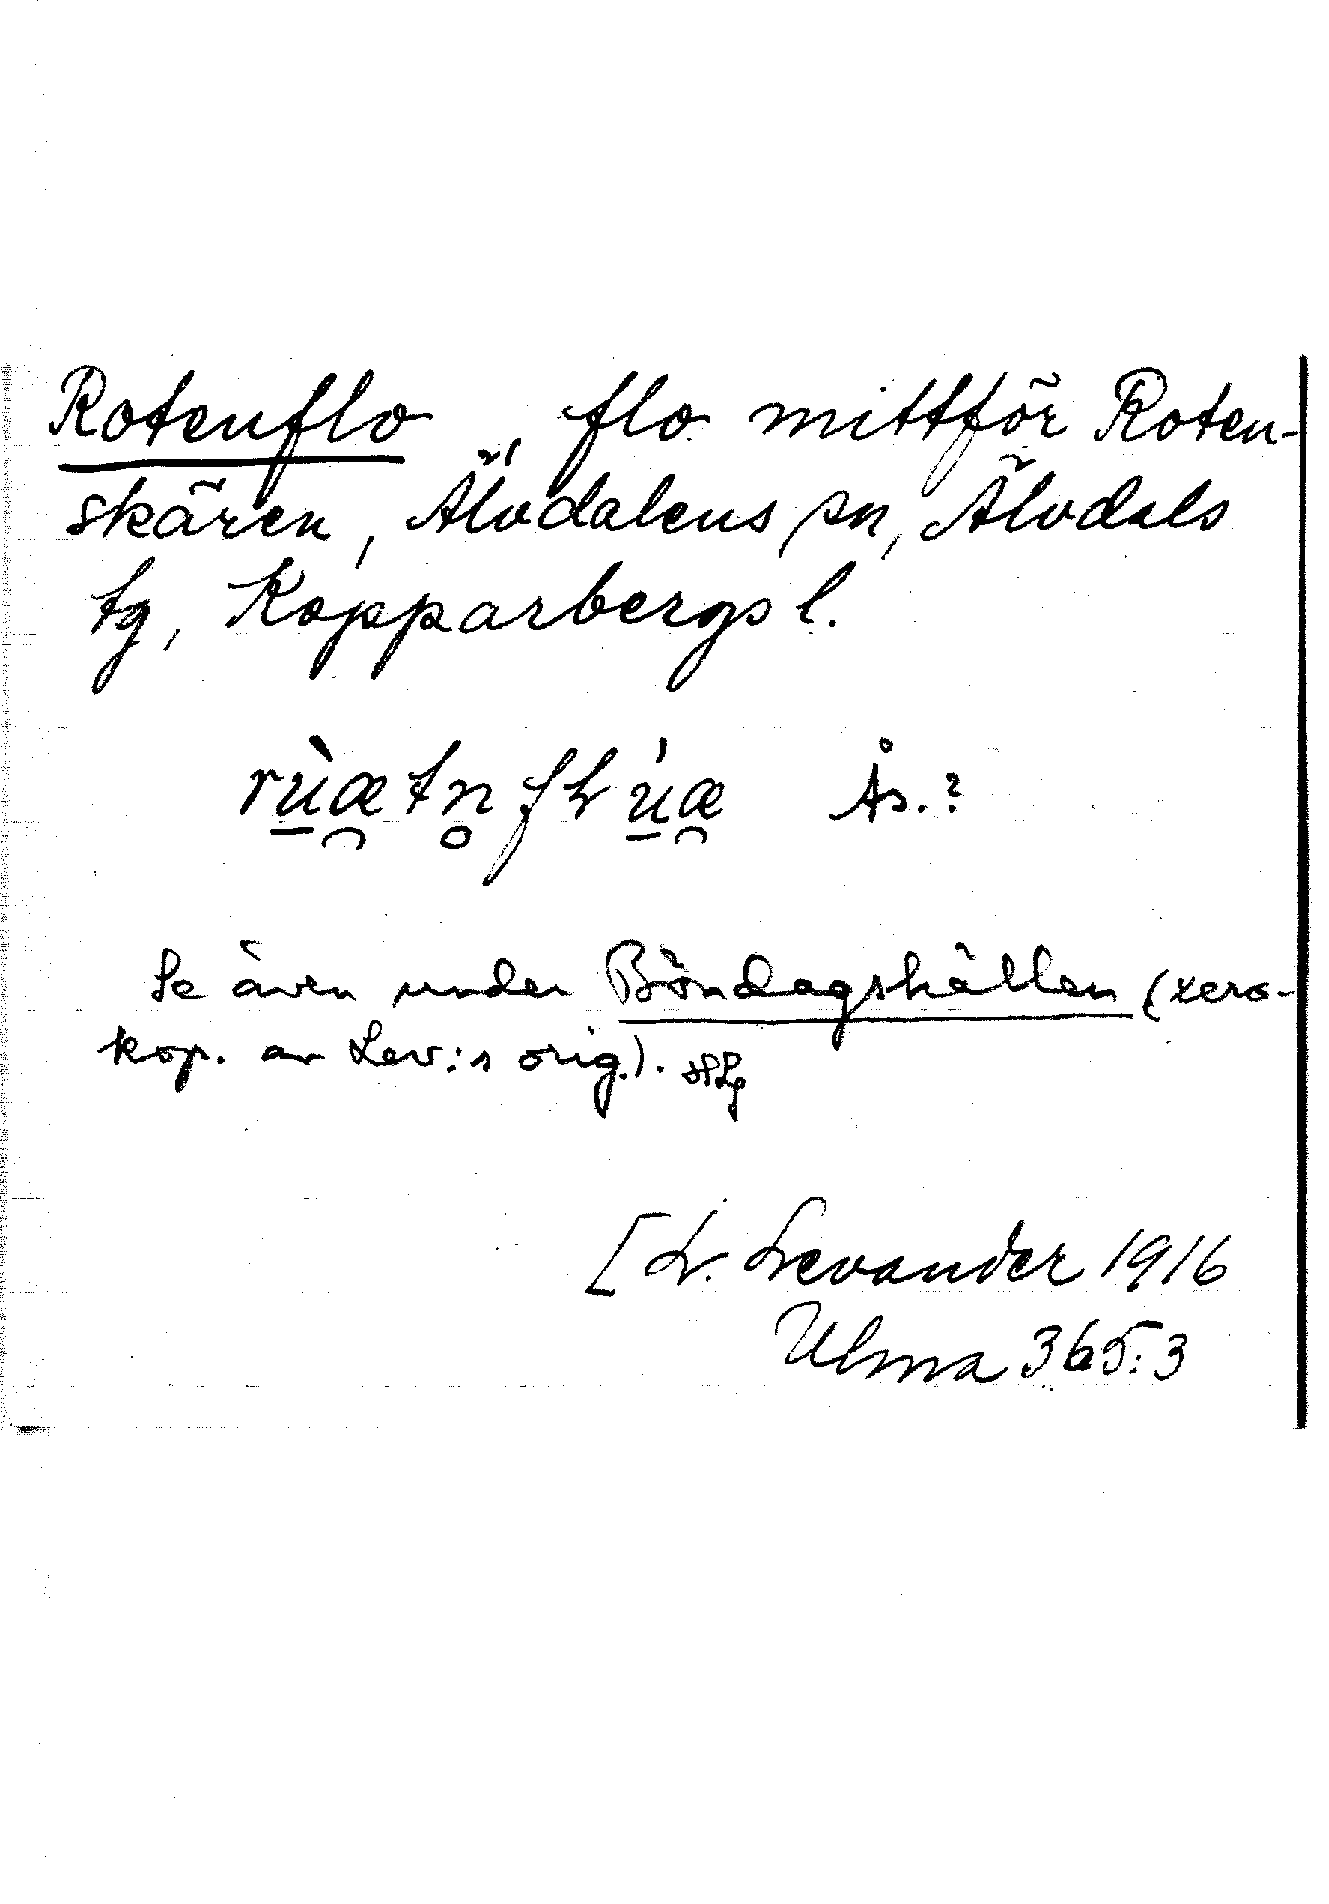 Rotenflo, flo mittför Roten-
skären, Älvdalens sn, Älvdals
tg, Kopparbergs l.
rùæ̯tn̥flúæ̯ Ås.?
Se även under Böndagshällen (xero-
kop. av Lev:s orig.).
[L. Levander 1916
Ulma 365:3